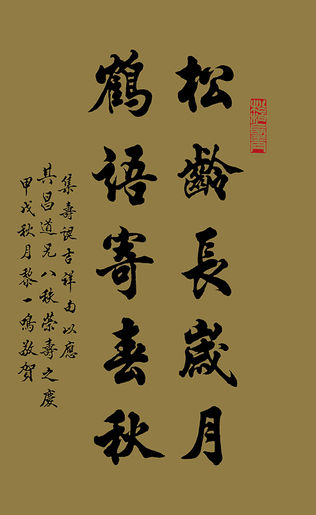 松齡長歲月
鶴語寄春秋
集壽誕吉祥句以應
其昌道兄八秩榮壽之慶
甲戌秋月黎一鳴敬賀